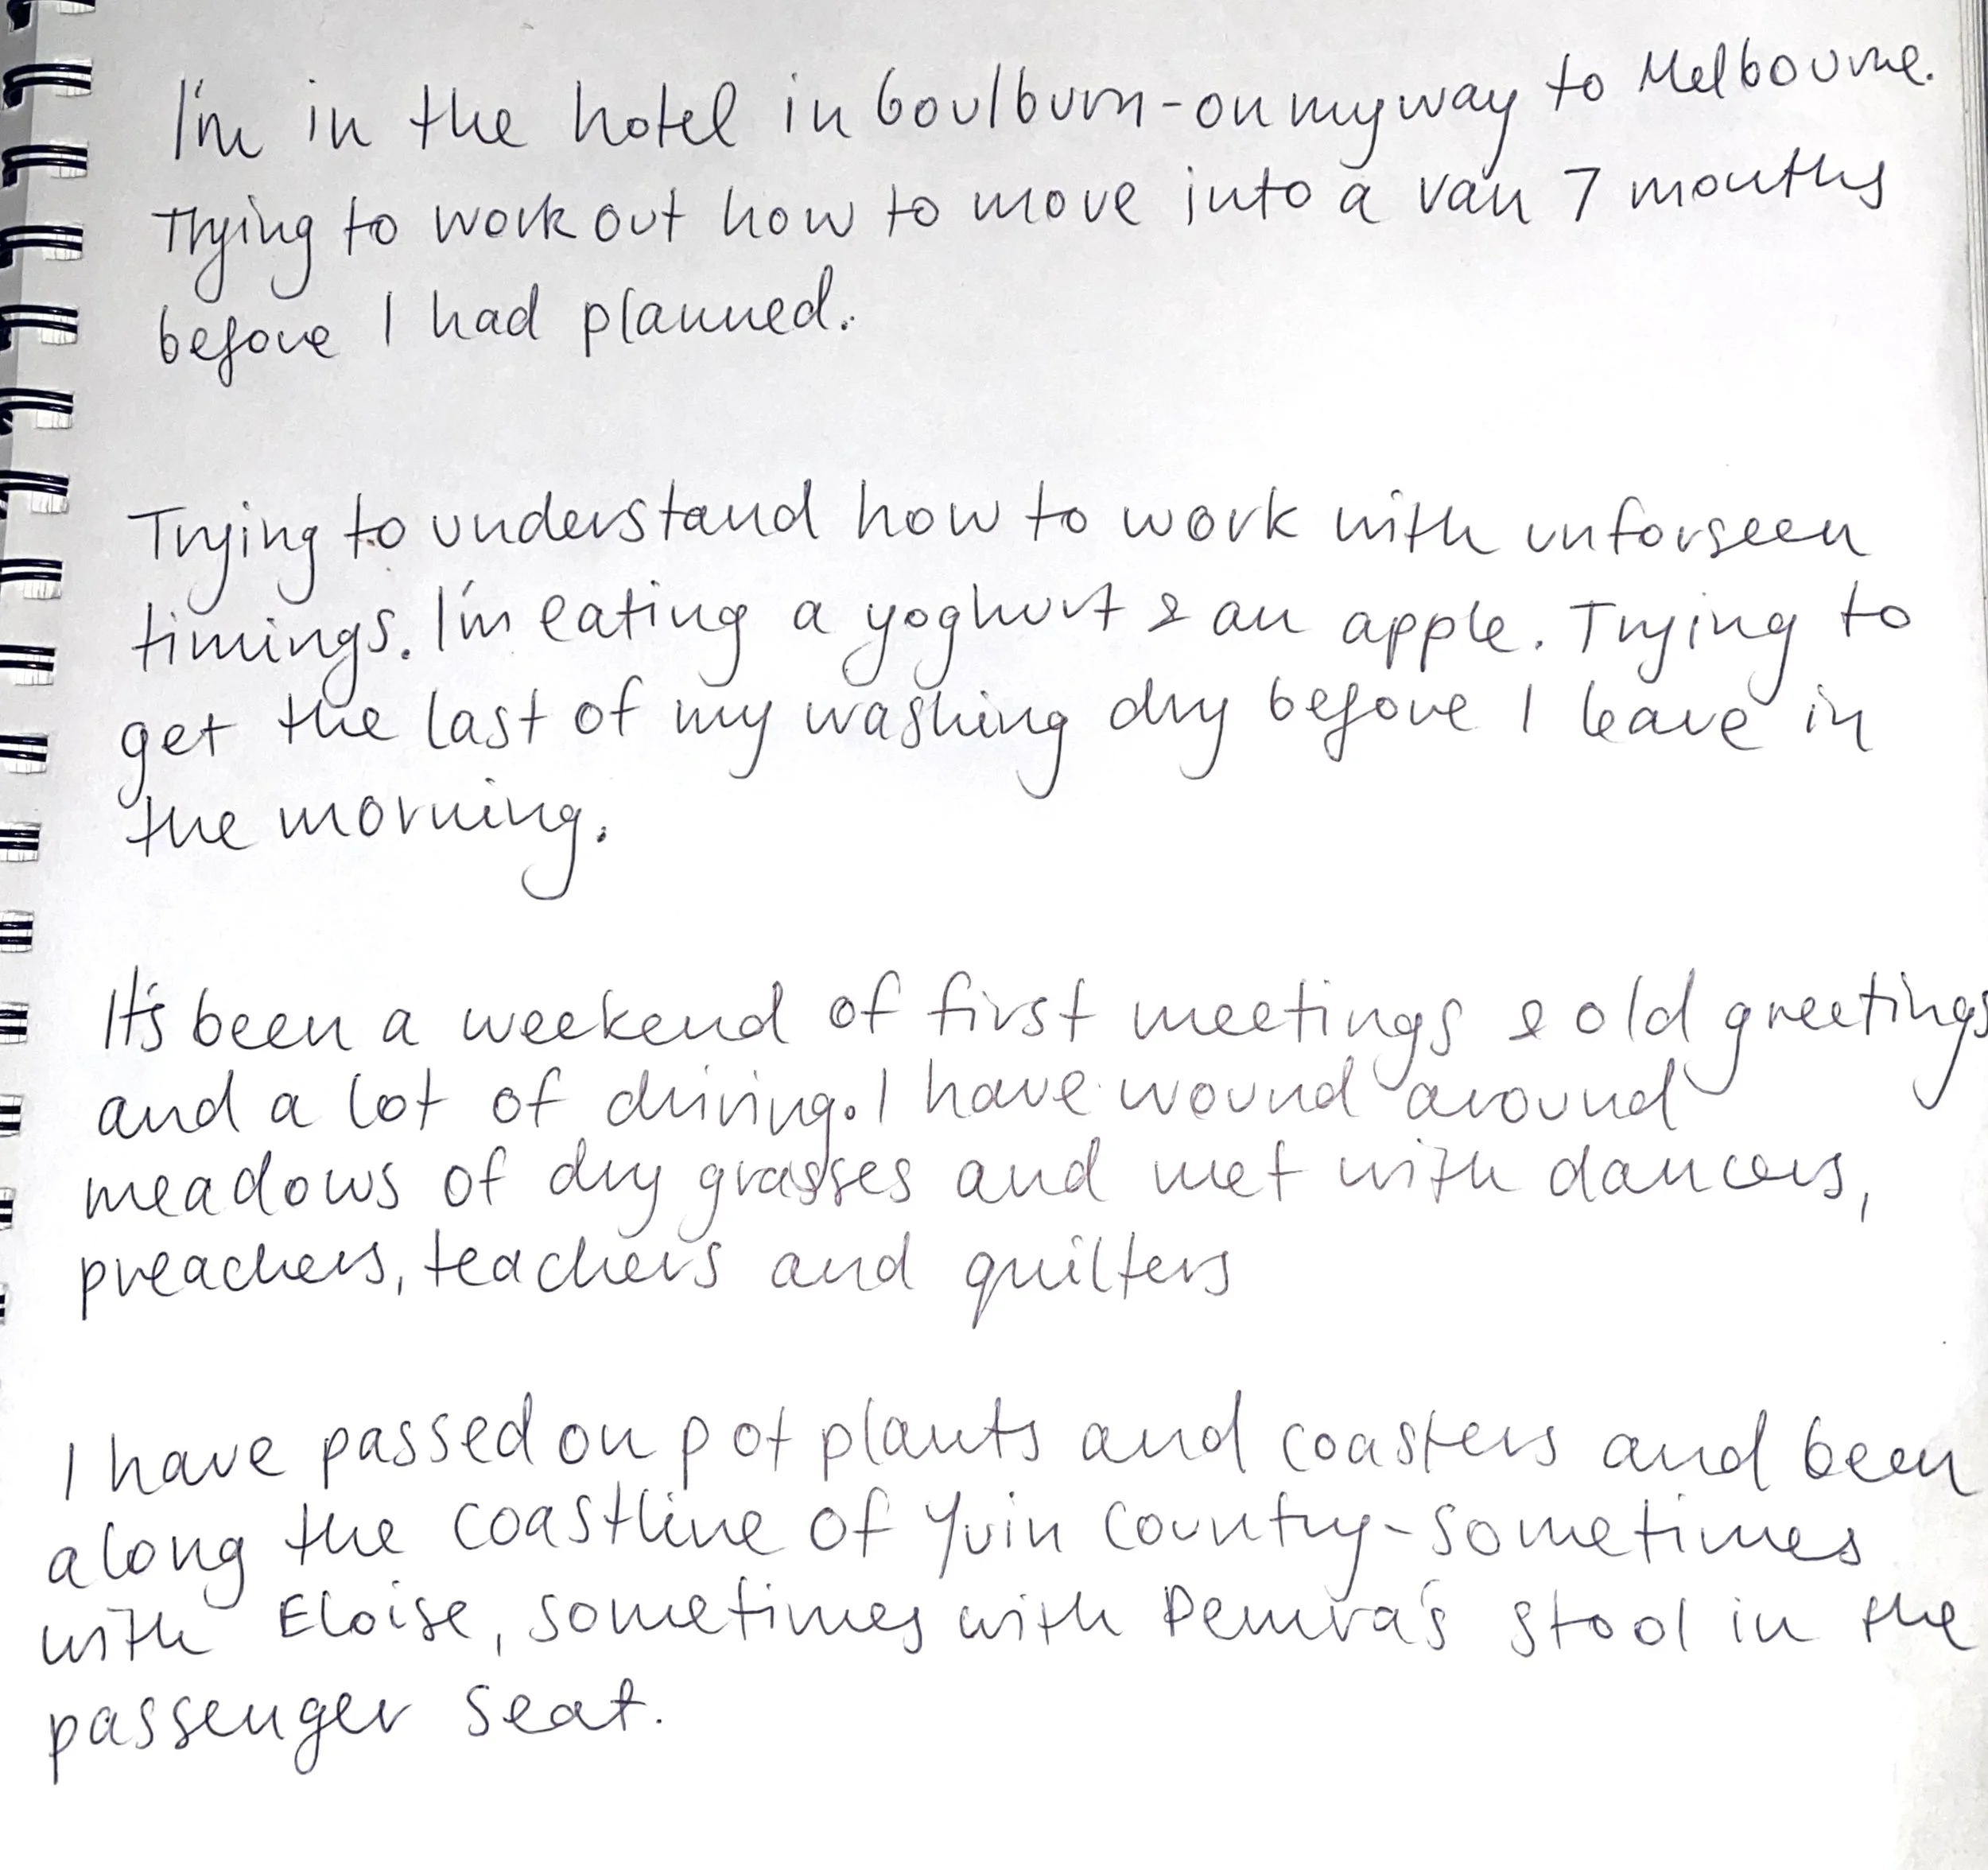 I'm in the hotel in Goulburn - on my way to Melbourne.
Trying to work out how to move into a van 7 months
before I had planned.
Trying to understand how to work with unforseen
timings. I'm eating a yoghurt & an apple. Trying to
get the last of my washing dry before I leave in
the morning.
It's been a weekend of first meetings & old greetings
and a lot of driving. I have wound around
meadows of dry grasses and met with dancers,
preachers, teachers and quilters
I have passed on pot plants and coasters and been
along the coastline of Yuin Country - sometimes
with Eloise, sometimes with Demra's stool in the
passenger seat.